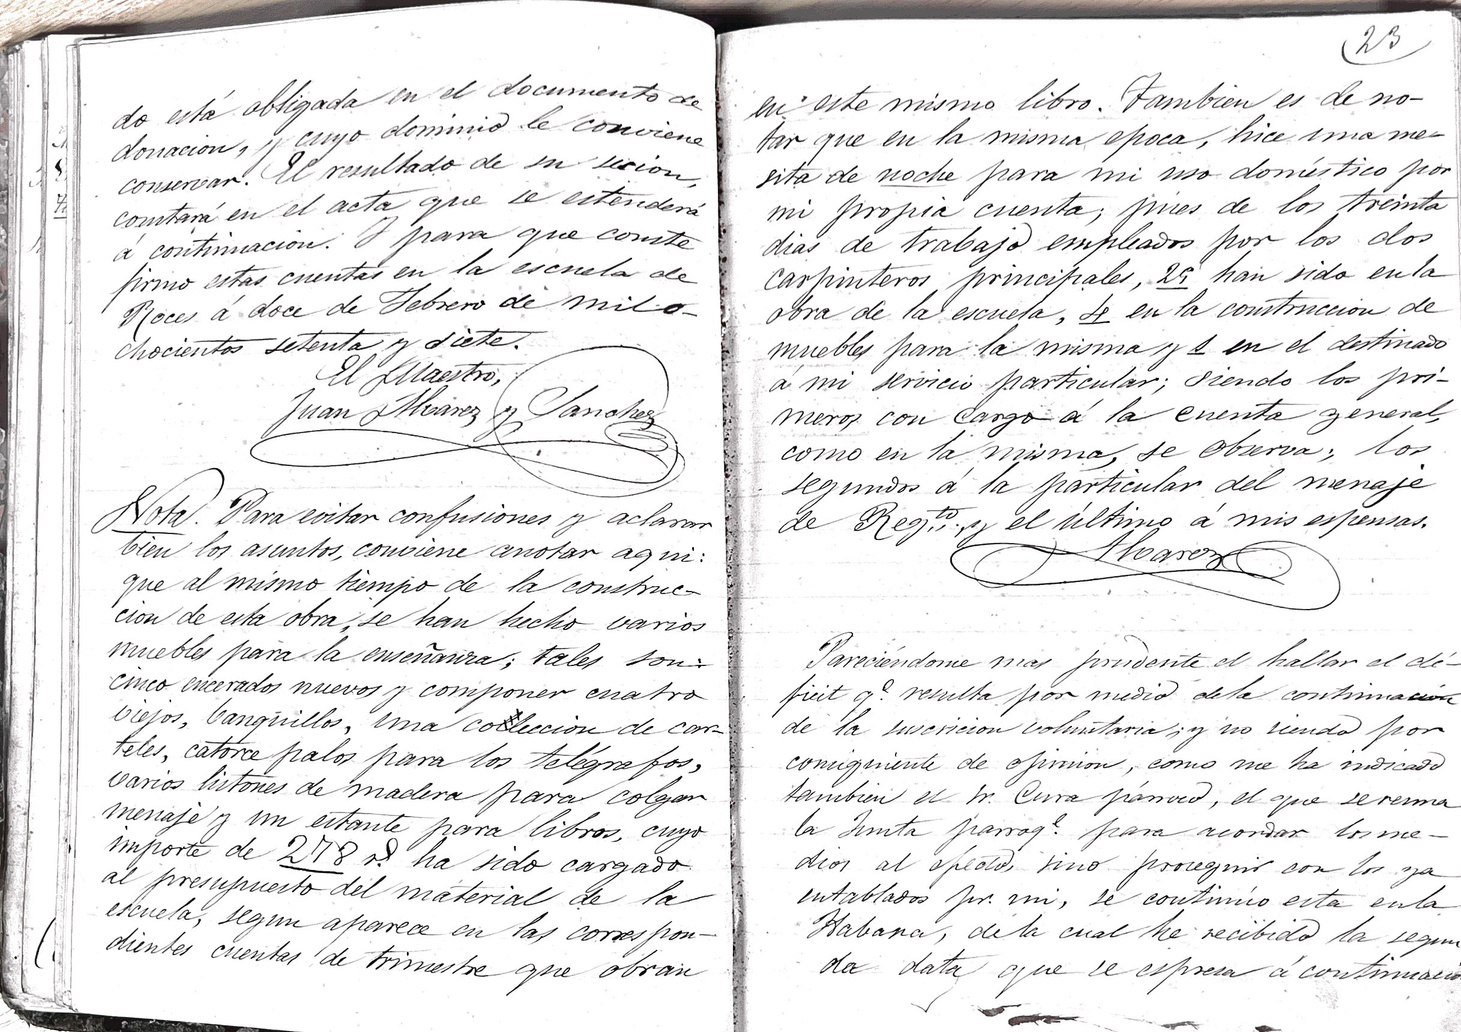 do está obligada en el documento de
donacion, y cuyo dominio le conviene
conservar. El resultado de su
constará en el acta que se estenderá
á continuacion. Y para que conste
firmo estas cuentas en la escuela de
Roces á doce de Febrero de mil o-
chocientos setenta y siete.
El Maestro,
Juan Alvarez y Sanchez
Nota. Para evitar confusiones y aclarar
bien los asuntos, conviene anotar aqui:
que al mismo tiempo de la construc-
cion de esta obra, se han hecho varios
muebles para la enseñanza; tales son:
cinco encerados nuevos y componer cuatro
viejos, banquillos, una coleccion de car-
teles, catorce palos para los telégrafos,
varios listones de madera para colgar
menaje y un estante para libros, cuyo
importe de 278 rs. ha sido cargado
al presupuesto del material de la
escuela, segun aparece en las correspon-
dientes cuentas de trimestre que obran
23
en este mismo libro. Tambien es de no-
tar que en la misma epoca, hice una me-
sita de noche para mi uso doméstico por
mi propia cuenta; pues de los treinta
dias de trabajo empleados por los dos
carpinteros principales, 25 han sido en la
obra de la escuela, 4 en la construccion de
muebles para la misma y 1 en el destinado
á mi servicio particular; siendo los pri-
meros con cargo á la cuenta general,
como en la misma, se observa; los
segundos á la particular del menaje
de Regto., y el último á mis espensas.
Alvarez
Pareciéndome mas prudente el hallar el dé-
ficit qe. resulta por medio de la continuación
de la suscricion voluntaria; y no siendo por
consiguiente de opinion, como me ha indicado
tambien el Sr. Cura párroco, el que se reuna
la Junta parroql. para acordar los me-
dios al efecto, sino proseguir con los ya
entablados pr. mi, se continúo esta en la
Habana, de la cual he recibido la segun
da data que se espresa á continuacion